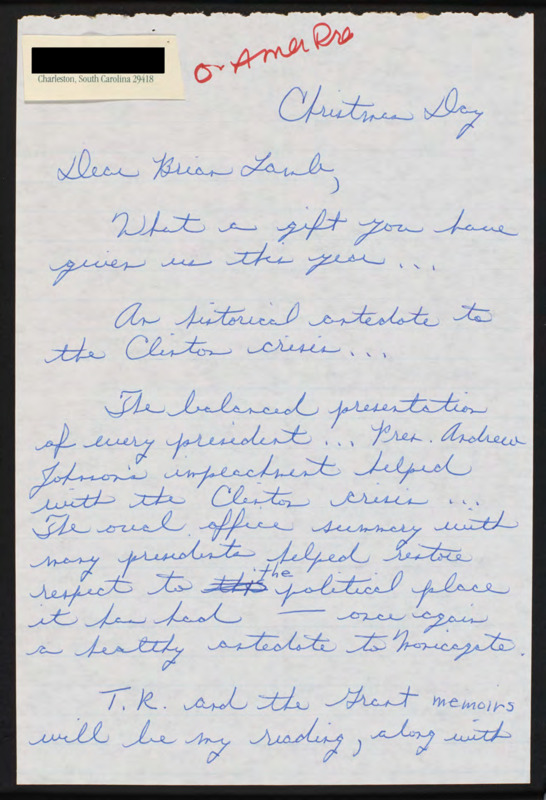 Charleston, South Carolina 29418
On AmerPre
Christmas Day
Dear Brian Lamb,
What a gift you have
given us this year ...
An historical antedote to
the Clinton crisis ...
The balanced presentation
of every president ... Pres. Andrew
Johnson's impeachment helped
with the Clinton crisis ...
The oval office summary with
many presidents helped restore
respect to this the political place
it has had — once again
a healthy antedote to Monicagate.
T.R. and the Grant memoirs
will be my reading, along with